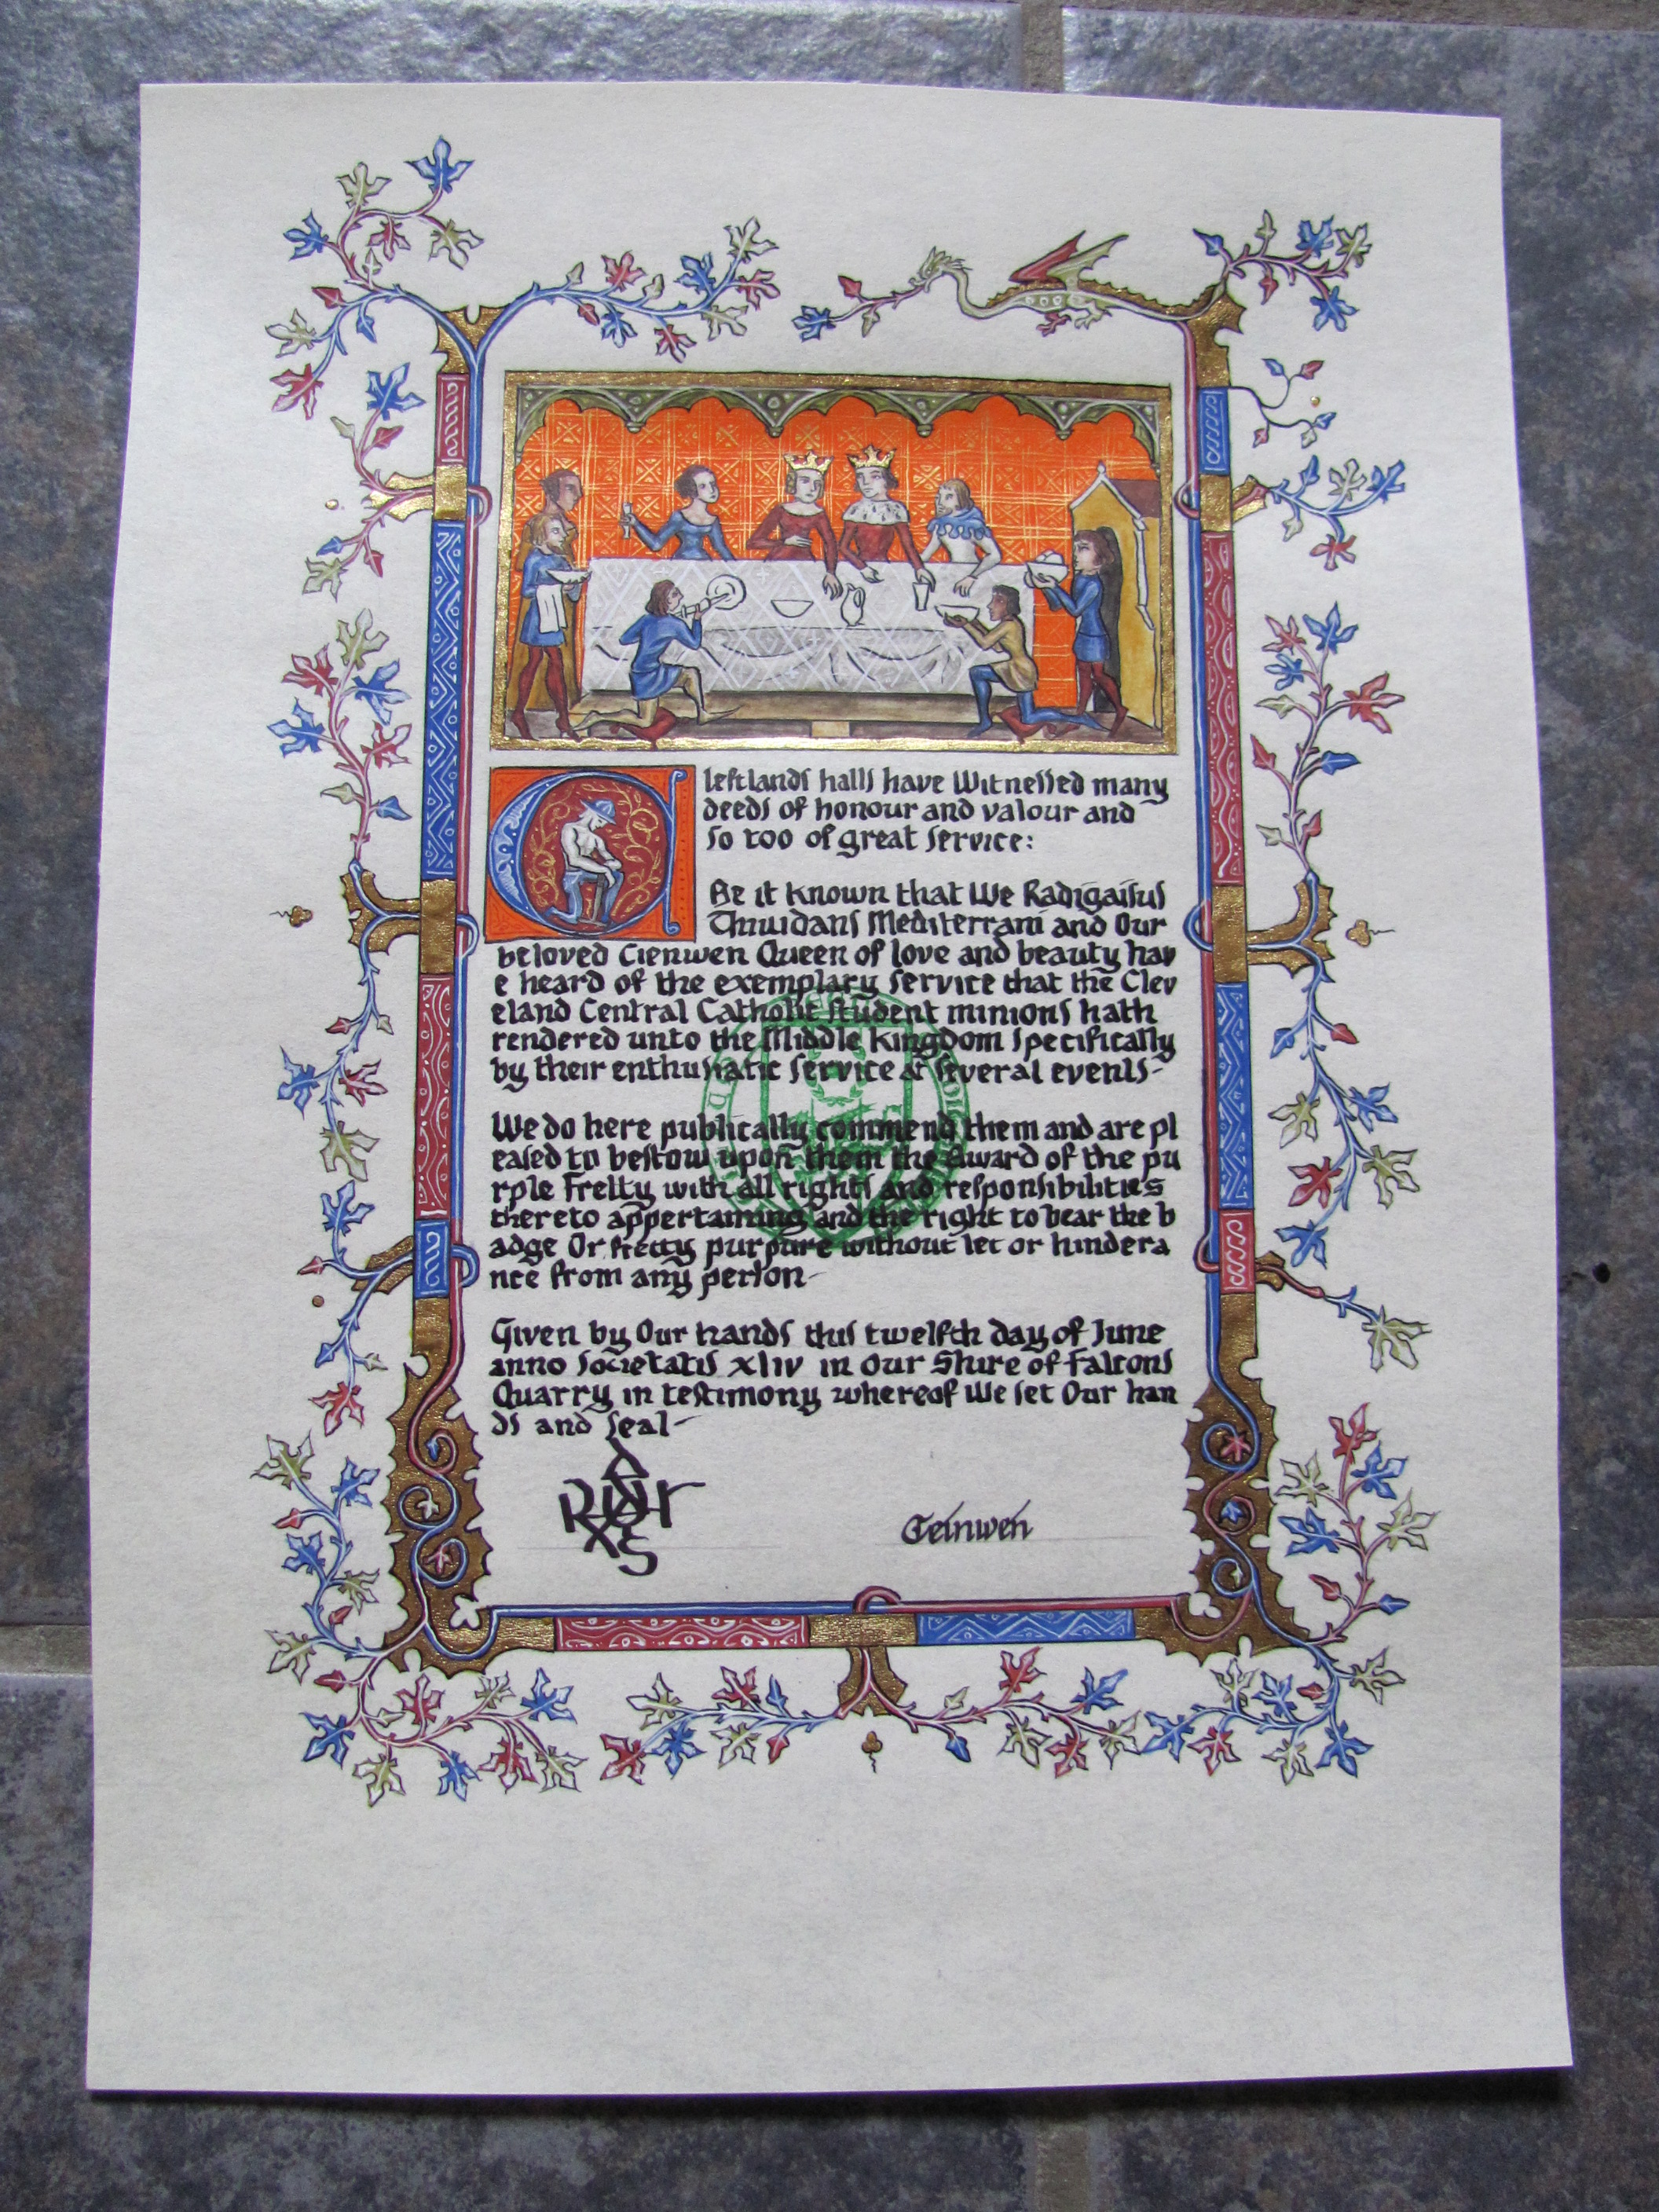 Cleftlands halls have Witnessed many
deeds of honour and valour and
so too of great service:
Be it known that We Radigaisus
Thiudans Mediterrani and Our
beloved Cienwen Queen of love and beauty hav
e heard of the exemplary service that the Clev
eland Central Catholic student minions hath
rendered unto the Middle Kingdom specifically
by their enthusiatic service at several events-
We do here publically commend them and are pl
eased to bestow upon them the Award of the pu
rple Fretty with all rights and responsibilities
thereto appertaining and the right to bear the b
adge Or fretty purpure without let or hindera
nce from any person-
Given by Our hands this twelfth day of June
anno societatis xliv in our Shire of Falcons
Quarry in testimony whereof We set Our han
ds and seal-
Ceinwen